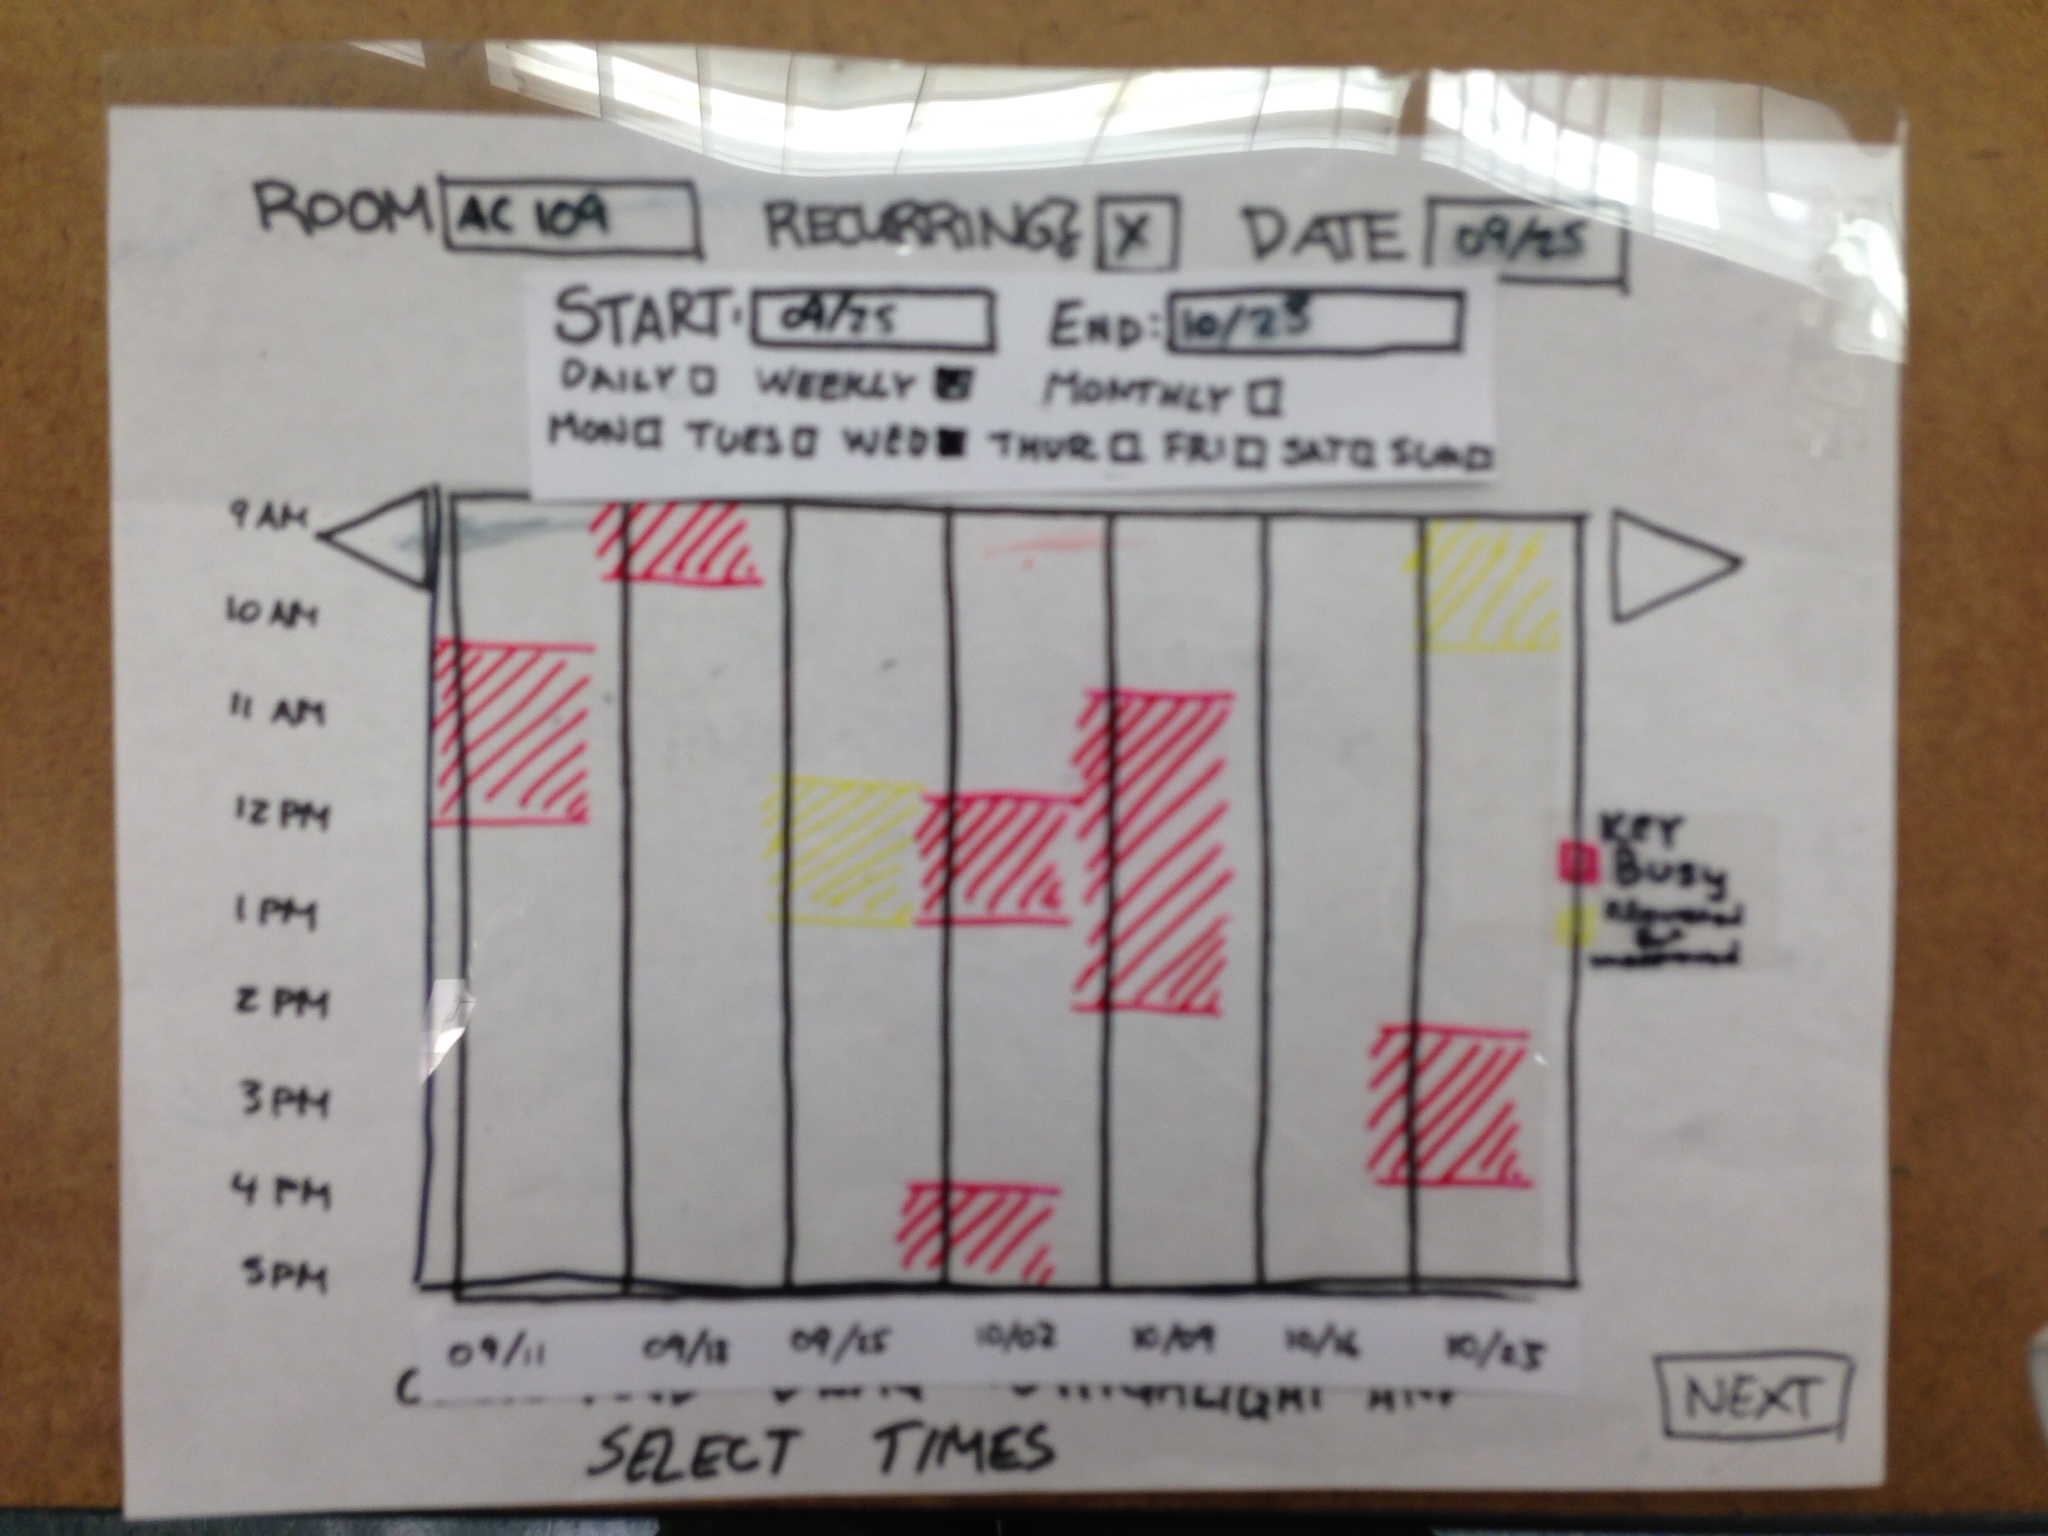 ROOM AC 109 RECURRING? X DATE 09/25
START: 09/25 END: 10/23
DAILY WEEKLY MONTHLY
MON TUES WED THUR FRI SAT SUN
9 AM
10 AM
11 AM
12 PM
1 PM
2 PM
3 PM
4 PM
5 PM
KEY
BUSY
09/11 09/18 09/25 10/02 10/09 10/16 10/23
HIGHLIGHT AND
SELECT TIMES
NEXT